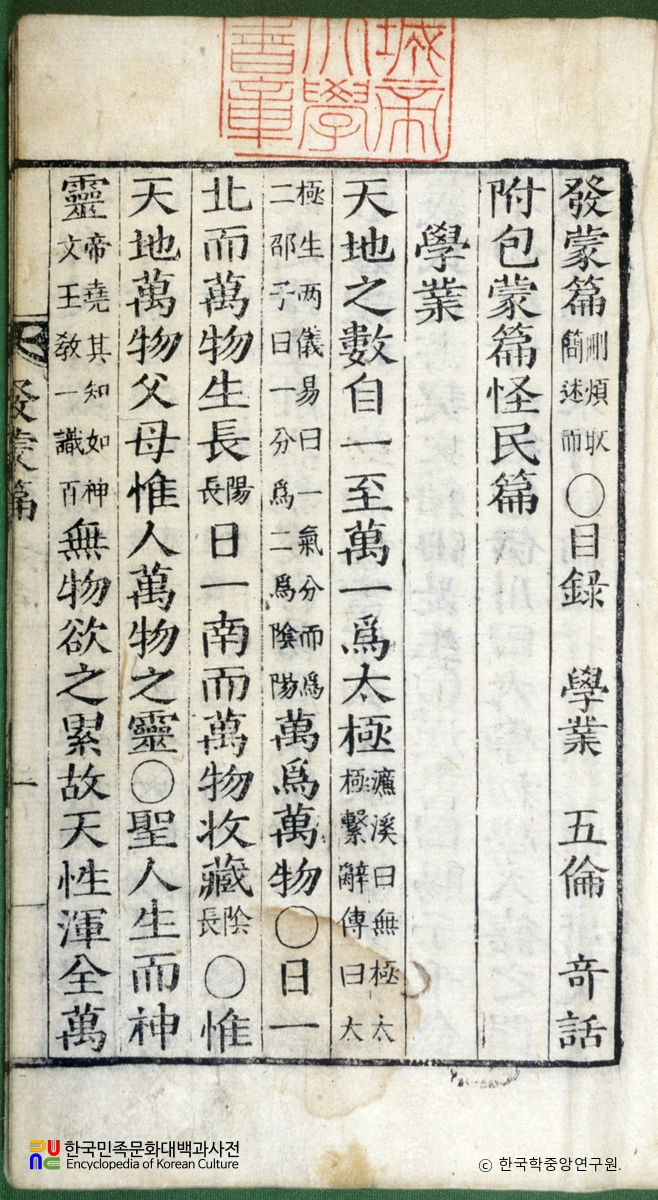 城帝
大學
書章
發蒙篇刪煩取簡述而○目録 學業 五倫 奇話
附包蒙篇怪民篇
學業
天地之數自一至萬一爲太極濂溪曰無極太極繫辭傳曰太
極生两儀易曰一氣分而爲二邵子曰一分爲二爲陰陽萬爲萬物○日一
北而萬物生長陽長日一南而萬物收藏陰長○惟
天地萬物父母惟人萬物之靈○聖人生而神
靈帝堯其知如神文王敎一識百無物欲之累故天性渾全萬
發蒙篇
一
한국민족문화대백과사전
Encyclopedia of Korean Culture
© 한국학중앙연구원.